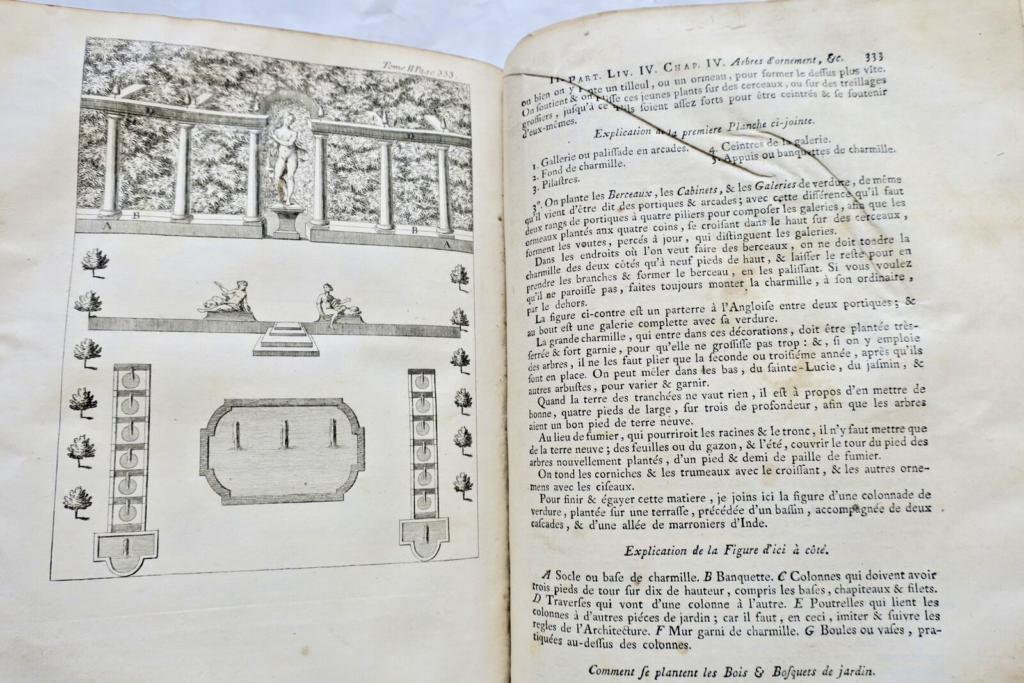 Tome II Page 333.
D
D
B
A
B
A
II. PART. LIV. IV. CHAP. IV. Arbres d'ornement, &c. 333
ou bien on y plante un tilleul, ou un ormeau, pour former le deſſus plus vîte.
On ſoutient & on liſſe ces jeunes plants ſur des cerceaux, ou ſur des treillages
groſſiers, juſqu'à ce qu'ils ſoient aſſez forts pour être ceintrés & ſe ſoutenir
d'eux-mêmes.
Explication de la premiere Planche ci-jointe.
1. Gallerie ou paliſſade en arcades. 4. Ceintres de la galerie.
2. Fond de charmille. 5. Appuis ou banquettes de charmille.
3. Pilaſtres.
3°. On plante les Berceaux, les Cabinets, & les Galeries de verdure, de même
qu'il vient d'être dit des portiques & arcades; avec cette différence qu'il faut
deux rangs de portiques à quatre piliers pour compoſer les galeries, afin que les
ormeaux plantés aux quatre coins, ſe croiſant dans le haut ſur des cerceaux,
forment les voutes, percés à jour, qui diſtinguent les galeries.
Dans les endroits où l'on veut faire des berceaux, on ne doit tondre la
charmille des deux côtés qu'à neuf pieds de haut, & laiſſer le reſte pour en
prendre les branches & former le berceau, en les paliſſant. Si vous voulez
qu'il ne paroiſſe pas, faites toujours monter la charmille, à ſon ordinaire,
par le dehors.
La figure ci-contre eſt un parterre à l'Angloiſe entre deux portiques; &
au bout eſt une galerie complette avec ſa verdure.
La grande charmille, qui entre dans ces décorations, doit être plantée très-
ſerrée & fort garnie, pour qu'elle ne groſſiſſe pas trop: &, ſi on y emploie
des arbres, il ne les faut plier que la ſeconde ou troiſiéme année, après qu'ils
ſont en place. On peut mêler dans les bas, du ſainte-Lucie, du jaſmin, &
autres arbuſtes, pour varier & garnir.
Quand la terre des tranchées ne vaut rien, il eſt à propos d'en mettre de
bonne, quatre pieds de large, ſur trois de profondeur, afin que les arbres
aient un bon pied de terre neuve.
Au lieu de fumier, qui pourriroit les racines & le tronc, il n'y faut mettre que
de la terre neuve; des feuilles ou du gazon, & l'été, couvrir le tour du pied des
arbres nouvellement plantés, d'un pied & demi de paille de fumier.
On tond les corniches & les trumeaux avec le croiſſant, & les autres orne-
mens avec les ciſeaux.
Pour finir & égayer cette matiere, je joins ici la figure d'une colonnade de
verdure, plantée ſur une terraſſe, précédée d'un baſſin, accompagnée de deux
caſcades, & d'une allée de marroniers d'Inde.
Explication de la Figure d'ici à côté.
A Socle ou baſe de charmille. B Banquette. C Colonnes qui doivent avoir
trois pieds de tour ſur dix de hauteur, compris les baſes, chapiteaux & filets.
D Traverſes qui vont d'une colonne à l'autre. E Poutrelles qui lient les
colonnes à d'autres piéces de jardin; car il faut, en ceci, imiter & ſuivre les
regles de l'Architecture. F Mur garni de charmille. G Boules ou vaſes, pra-
tiquées au-deſſus des colonnes.
Comment ſe plantent les Bois & Boſquets de jardin.